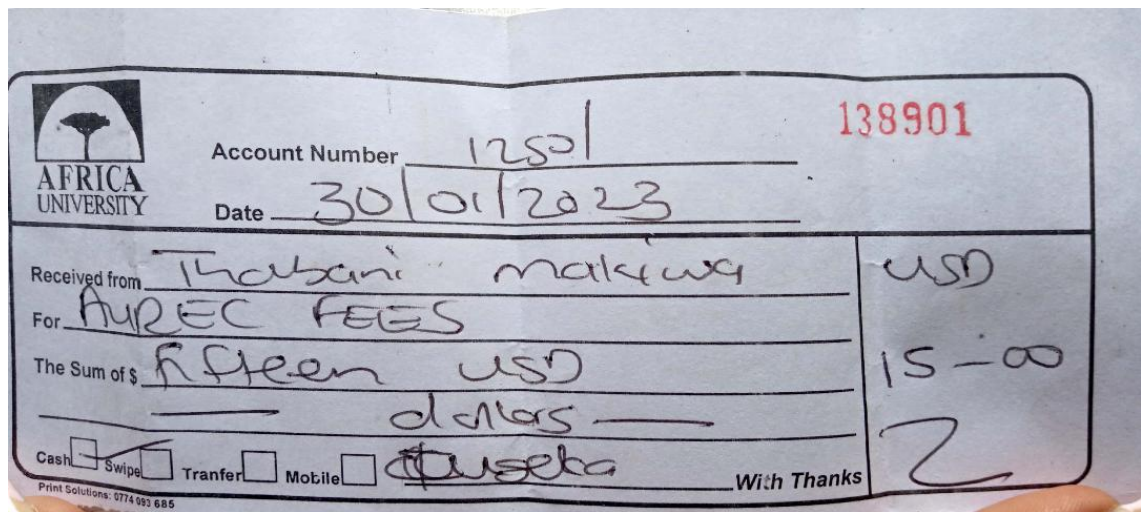 138901
AFRICA
UNIVERSITY
Account Number 1250/
Date 30/01/2023
Received from Thabani Makiwa USD
For AUREC FEES
The Sum of $ fifteen USD 15-00
dollars
Cash Swipe Tranfer Mobile With Thanks
Print Solutions: 0774 093 685